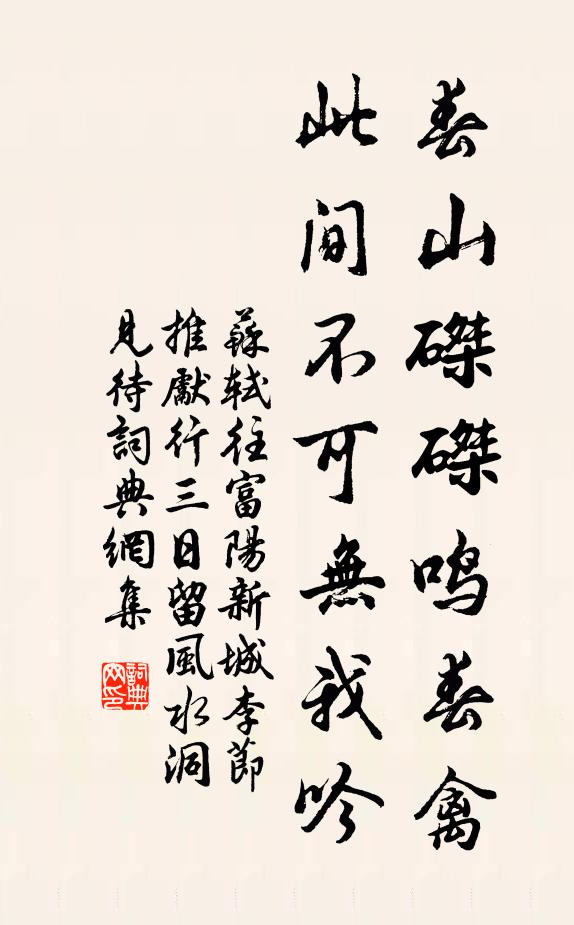 春山磔磔鸣春禽
此间不可無我吟
蘇軾往富陽新城李節
推獻行三日留風水洞
見待詞典網集
詞典
网印